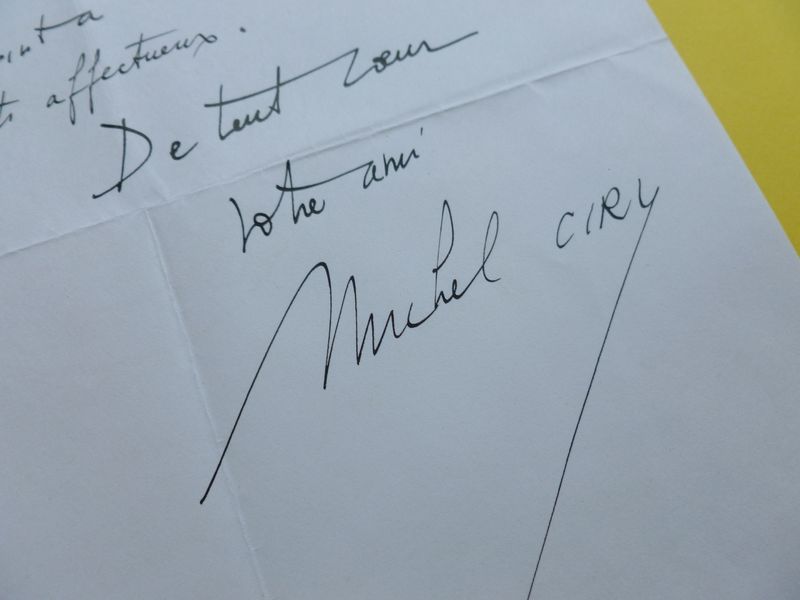 affectueux.
De tout cœur
votre ami
Michel CIRY